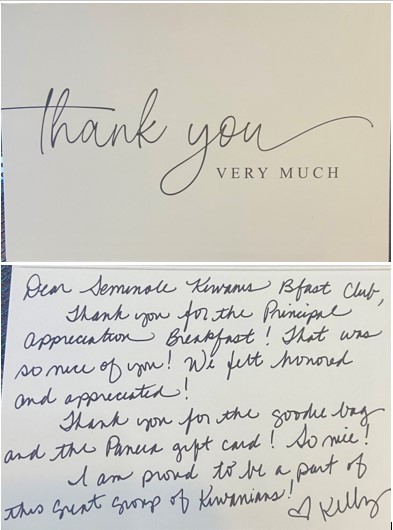 thank you
VERY MUCH
Dear Seminole Kiwanis Bfast Club,
Thank you for the Principal
Appreciation Breakfast! That was
so nice of you! We felt honored
and appreciated!
Thank you for the goodie bag
and the Panera gift card! So nice!
I am proud to be a part of
this great group of Kiwanians!
♡ Kelly